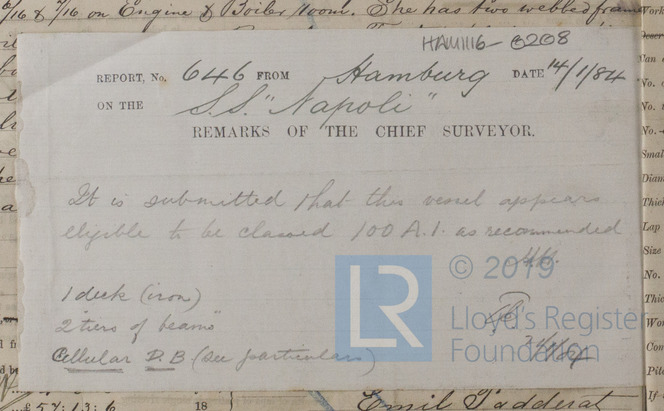 6/16 & 7/16 on Engine & Boiler room. She has two webbed frame
HAM1116-0208
REPORT, No. 646 FROM Hamburg DATE 14/1/84
ON THE S.S. "Napoli"
REMARKS OF THE CHIEF SURVEYOR.
It is submitted that this vessel appears
eligible to be classed 100 A.1. as recommended
© 2019
LR
Lloyd's Register
Foundation
1 deck (iron)
2 "tiers of beams"
Cellular D.B (see particulars)
£57:13:6
18
Emil Padderat
Work
No.
No.
No.
Smal
Diam
Thick
Lap
Size
No.
Thic
Wor
Con
Pite
If